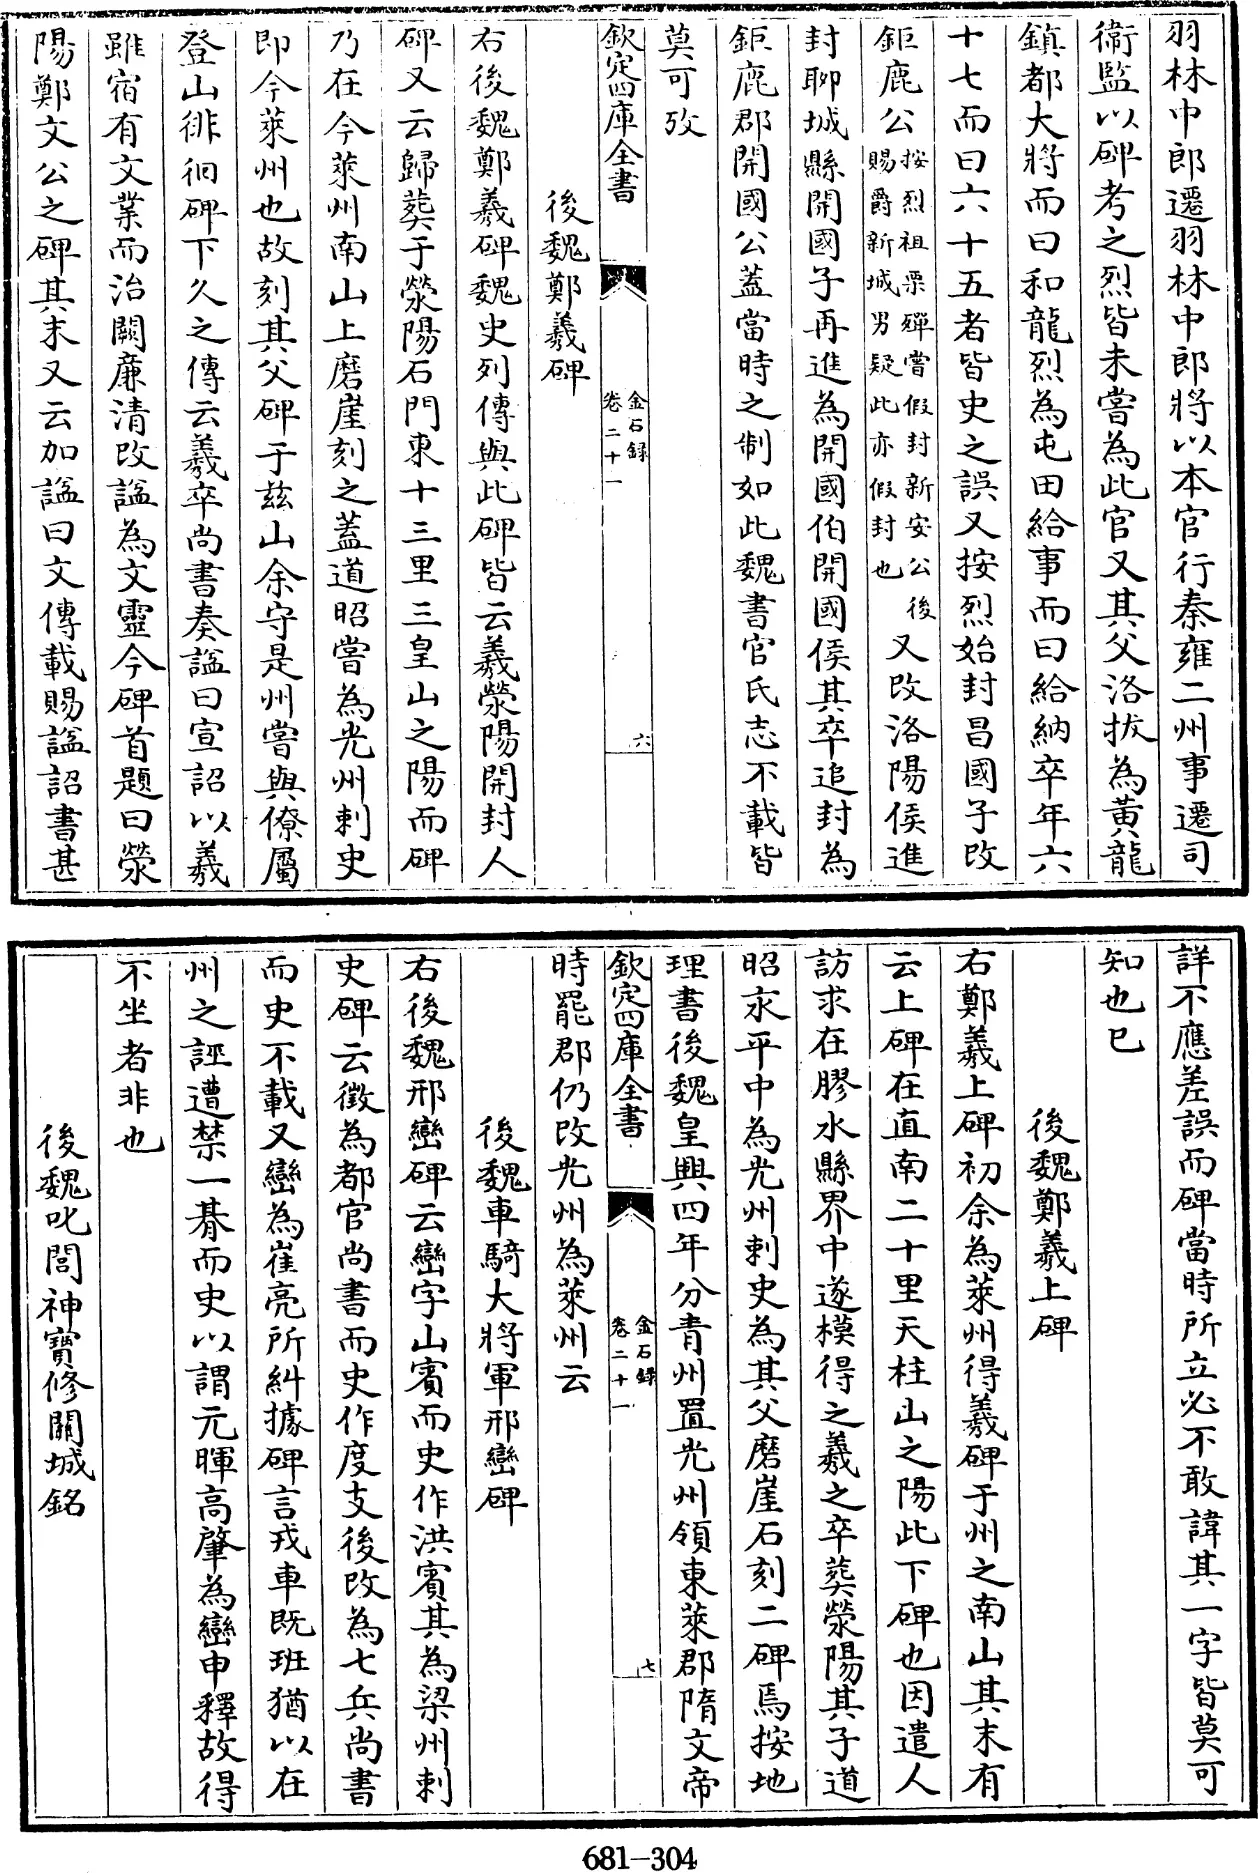 羽林中郎遷羽林中郎將以本官行秦雍二州事遷司
衛監以碑考之烈皆未嘗為此官又其父洛拔為黃龍
鎮都大將而曰和龍烈為屯田給事而曰給納卒年六
十七而曰六十五者皆史之誤又按烈始封昌國子改
鉅鹿公按烈祖栗磾嘗假封新安公後賜爵新城男疑此亦假封也又改洛陽侯進
封聊城縣開國子再進為開國伯開國侯其卒追封為
鉅鹿郡開國公蓋當時之制如此魏書官氏志不載皆
莫可攷
欽定四庫全書
金石錄
卷二十一
六
後魏鄭羲碑
右後魏鄭羲碑魏史列傳與此碑皆云羲滎陽開封人
碑又云歸葬于滎陽石門東十三里三皇山之陽而碑
乃在今萊州南山上磨崖刻之蓋道昭嘗為光州刺史
即今萊州也故刻其父碑于茲山余守是州嘗與僚屬
登山徘徊碑下久之傳云羲卒尚書奏諡曰宣詔以羲
雖宿有文業而治闕廉清改諡為文靈今碑首題曰滎
陽鄭文公之碑其末又云加諡曰文傳載賜諡詔書甚
詳不應差誤而碑當時所立必不敢諱其一字皆莫可
知也已
後魏鄭羲上碑
右鄭羲上碑初余為萊州得羲碑于州之南山其末有
云上碑在直南二十里天柱山之陽此下碑也因遣人
訪求在膠水縣界中遂模得之羲之卒葬滎陽其子道
昭永平中為光州刺史為其父磨崖石刻二碑焉按地
理書後魏皇興四年分青州置光州領東萊郡隋文帝
欽定四庫全書
金石錄
卷二十一
七
時罷郡仍改光州為萊州云
後魏車騎大將軍邢巒碑
右後魏邢巒碑云巒字山賓而史作洪賓其為梁州刺
史碑云徵為都官尚書而史作度支後改為七兵尚書
而史不載又巒為崔亮所糾據碑言戎車既班猶以在
州之誣遭禁一朞而史以謂元暉高肇為巒申釋故得
不坐者非也
後魏叱閭神寶修關城銘
681-304